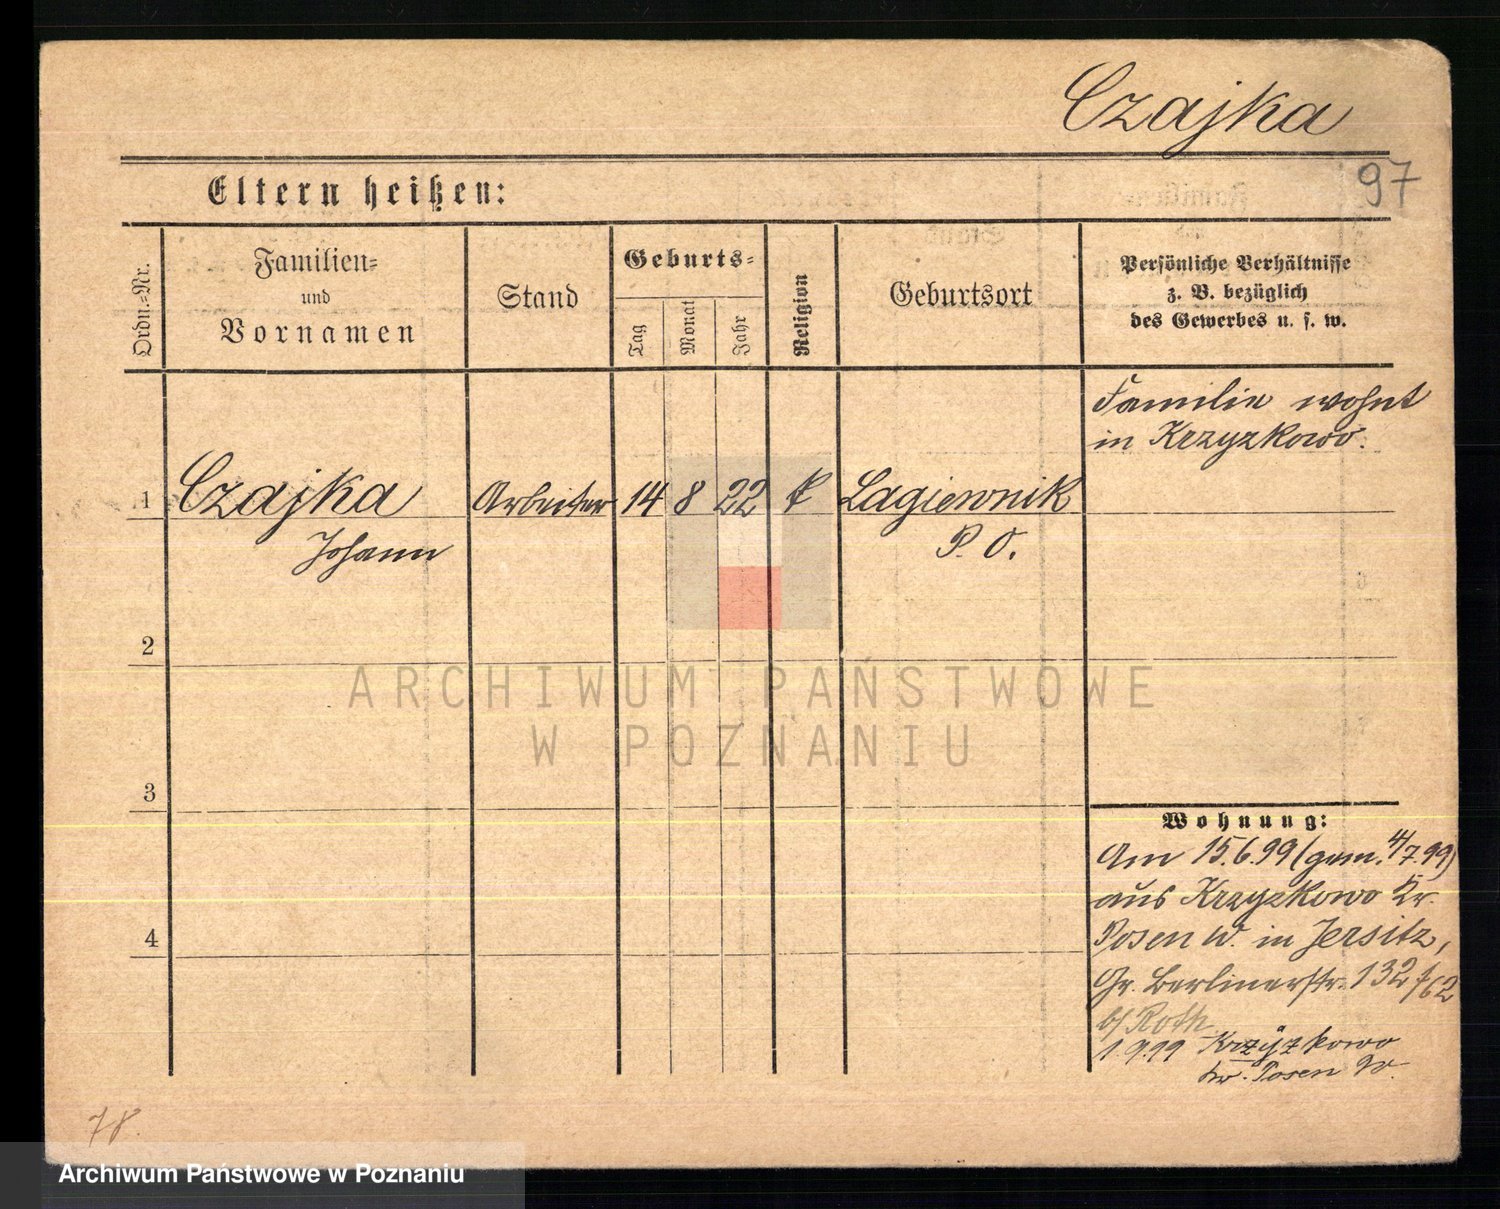 Czajka
97
Eltern heißen:
Ordn.-Nr.
Familien-
und
Vornamen
Stand
Geburts-
Tag
Monat
Jahr
Religion
Geburtsort
Persönliche Verhältnisse
z. B. bezüglich
des Gewerbes u. s. w.
Familie wohnt
in Krzyzkowo.
1 Czajka Arbeiter 14 8 22 k Lagiewnik
Johann P. O.
2
ARCHIWUM PAŃSTWOWE
W POZNANIU
3
Wohnung:
Am 15.6.99 (gem. 4/7.99)
aus Krzyzkowo Kr.
4
Posen W. in Jersitz,
Gr. Berlinerstr. 132 /62
b/ Roth
1.9.99 Krzyzkowo
Kr. Posen W.
78.
Archiwum Państwowe w Poznaniu